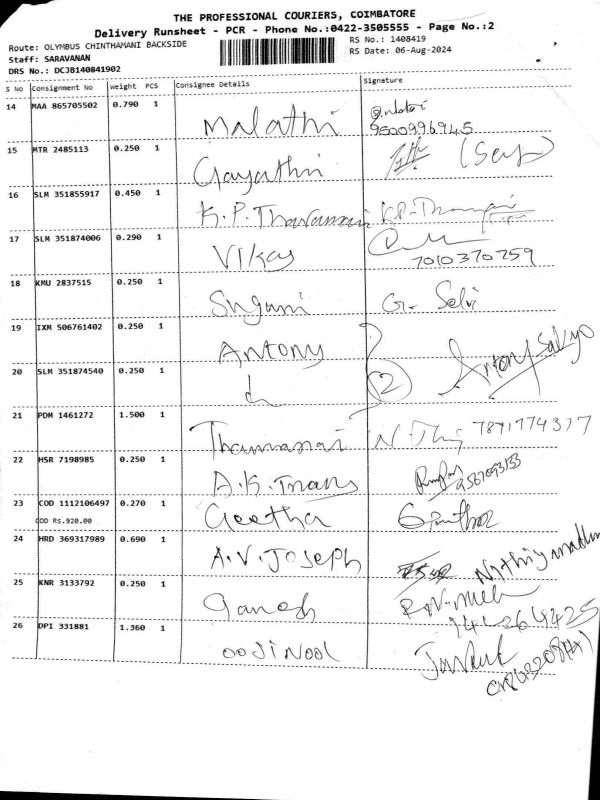 THE PROFESSIONAL COURIERS, COIMBATORE
Delivery Runsheet - PCR - Phone No.:0422-3505555 - Page No.:2
Route: OLYMBUS CHINTHAMANI BACKSIDE
RS No.: 1408419
Staff: SARAVANAN
RS Date: 06-Aug-2024
DRS No.: DCJB140841902
S No Consignment No Weight PCS Consignee Details Signature
14 MAA 865705502 0.790 1 Malathi
9500996945
15 MTR 2485113 0.250 1 Gayathri
16 SLM 351855917 0.450 1 K.P.Thavamani
17 SLM 351874006 0.290 1 Vikas
7010370759
18 KMU 2837515 0.250 1 Suguni G. Selvi
19 IXM 506761402 0.250 1 Antony
20 SLM 351874540 0.250 1 2 Antony
21 PDM 1461272 1.500 1 Thavamani
22 HSR 7198985 0.250 1 A.K.Trans
23 COD 1112106497 0.270 1 Geetha
COD Rs.920.00
24 HRD 369317989 0.690 1 A.V.Joseph
25 KNR 3133792 0.250 1 Ganesh
26 DPI 331881 1.360 1